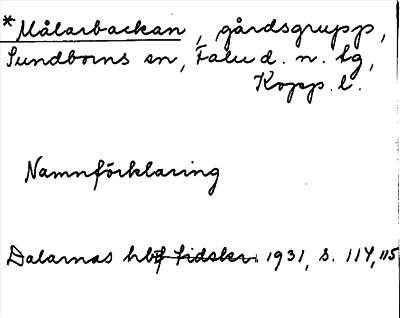 *Målarbackan, gårdsgrupp,
Sundborns sn, Falu d. n. tg,
Kopp. l.
Namnförklaring
Dalarnas hbf Tidskr. 1931, s. 114, 115